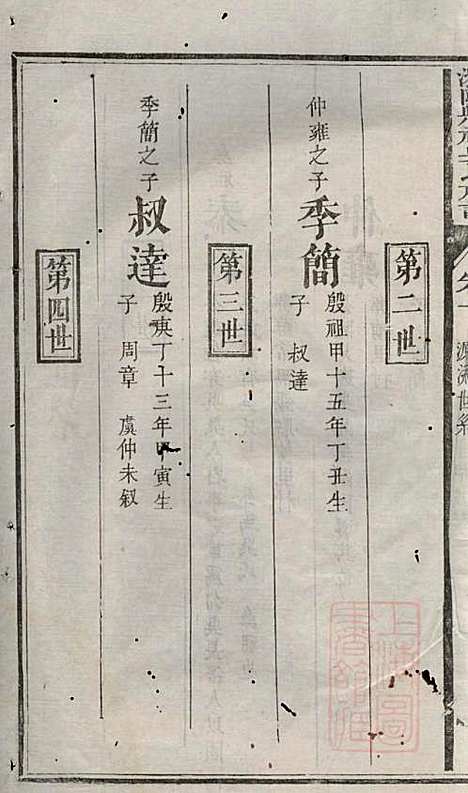 第二世
仲雍之子
季簡
殷祖甲十五年丁丑生
子 叔達
第三世
季簡之子
叔達
殷庚丁十三年甲寅生
子 周章 虞仲未叙
第四世
源流世系